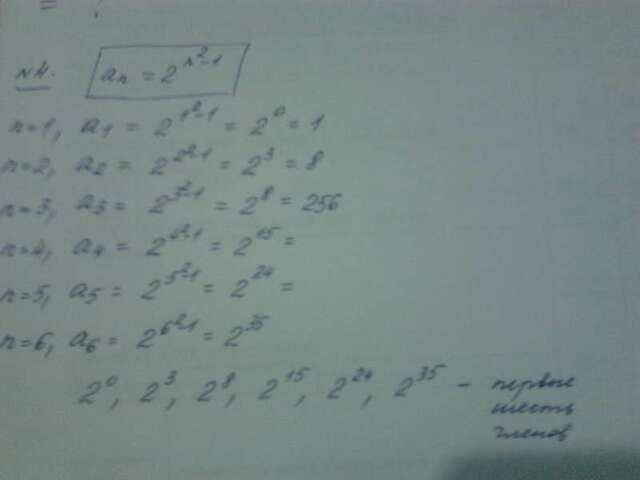 = ?
№4. aₙ = 2^(n²-1)
n=1, a₁ = 2^(1²-1) = 2⁰ = 1
n=2, a₂ = 2^(2²-1) = 2³ = 8
n=3, a₃ = 2^(3²-1) = 2⁸ = 256
n=4, a₄ = 2^(4²-1) = 2¹⁵ =
n=5, a₅ = 2^(5²-1) = 2²⁴ =
n=6, a₆ = 2^(6²-1) = 2³⁵
2⁰, 2³, 2⁸, 2¹⁵, 2²⁴, 2³⁵ - первые
шесть
членов